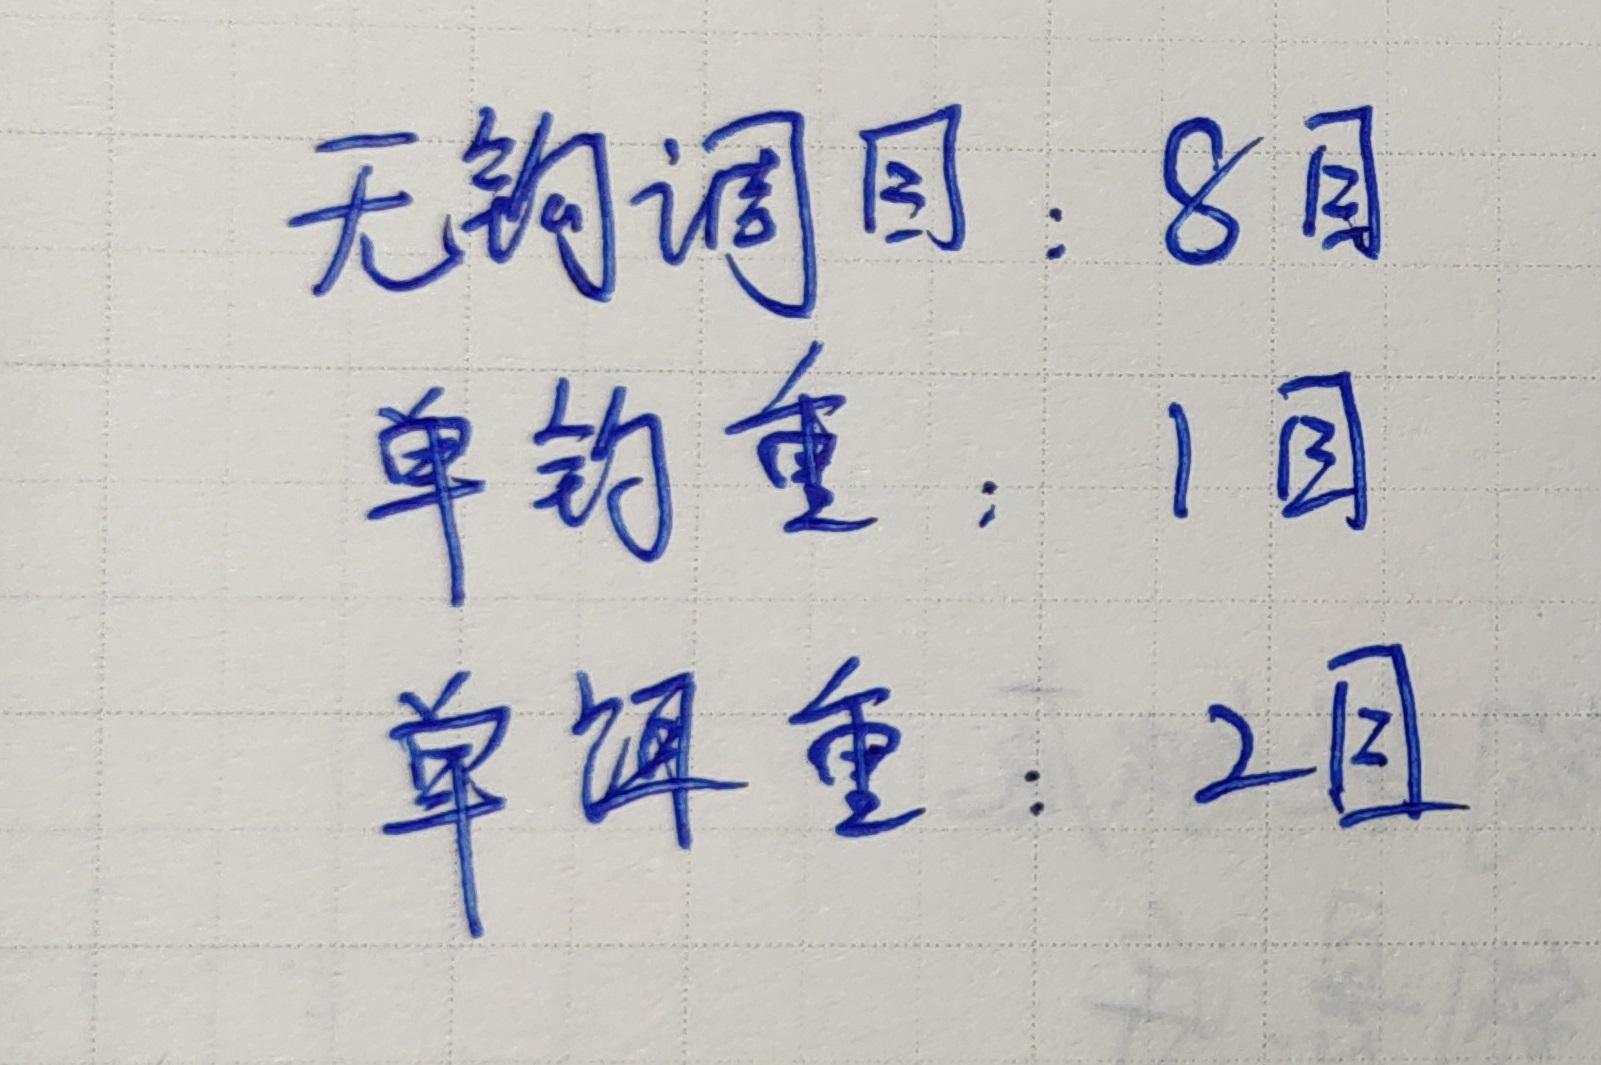 无钩调目：8目
单钩重：1目
单饵重：2目